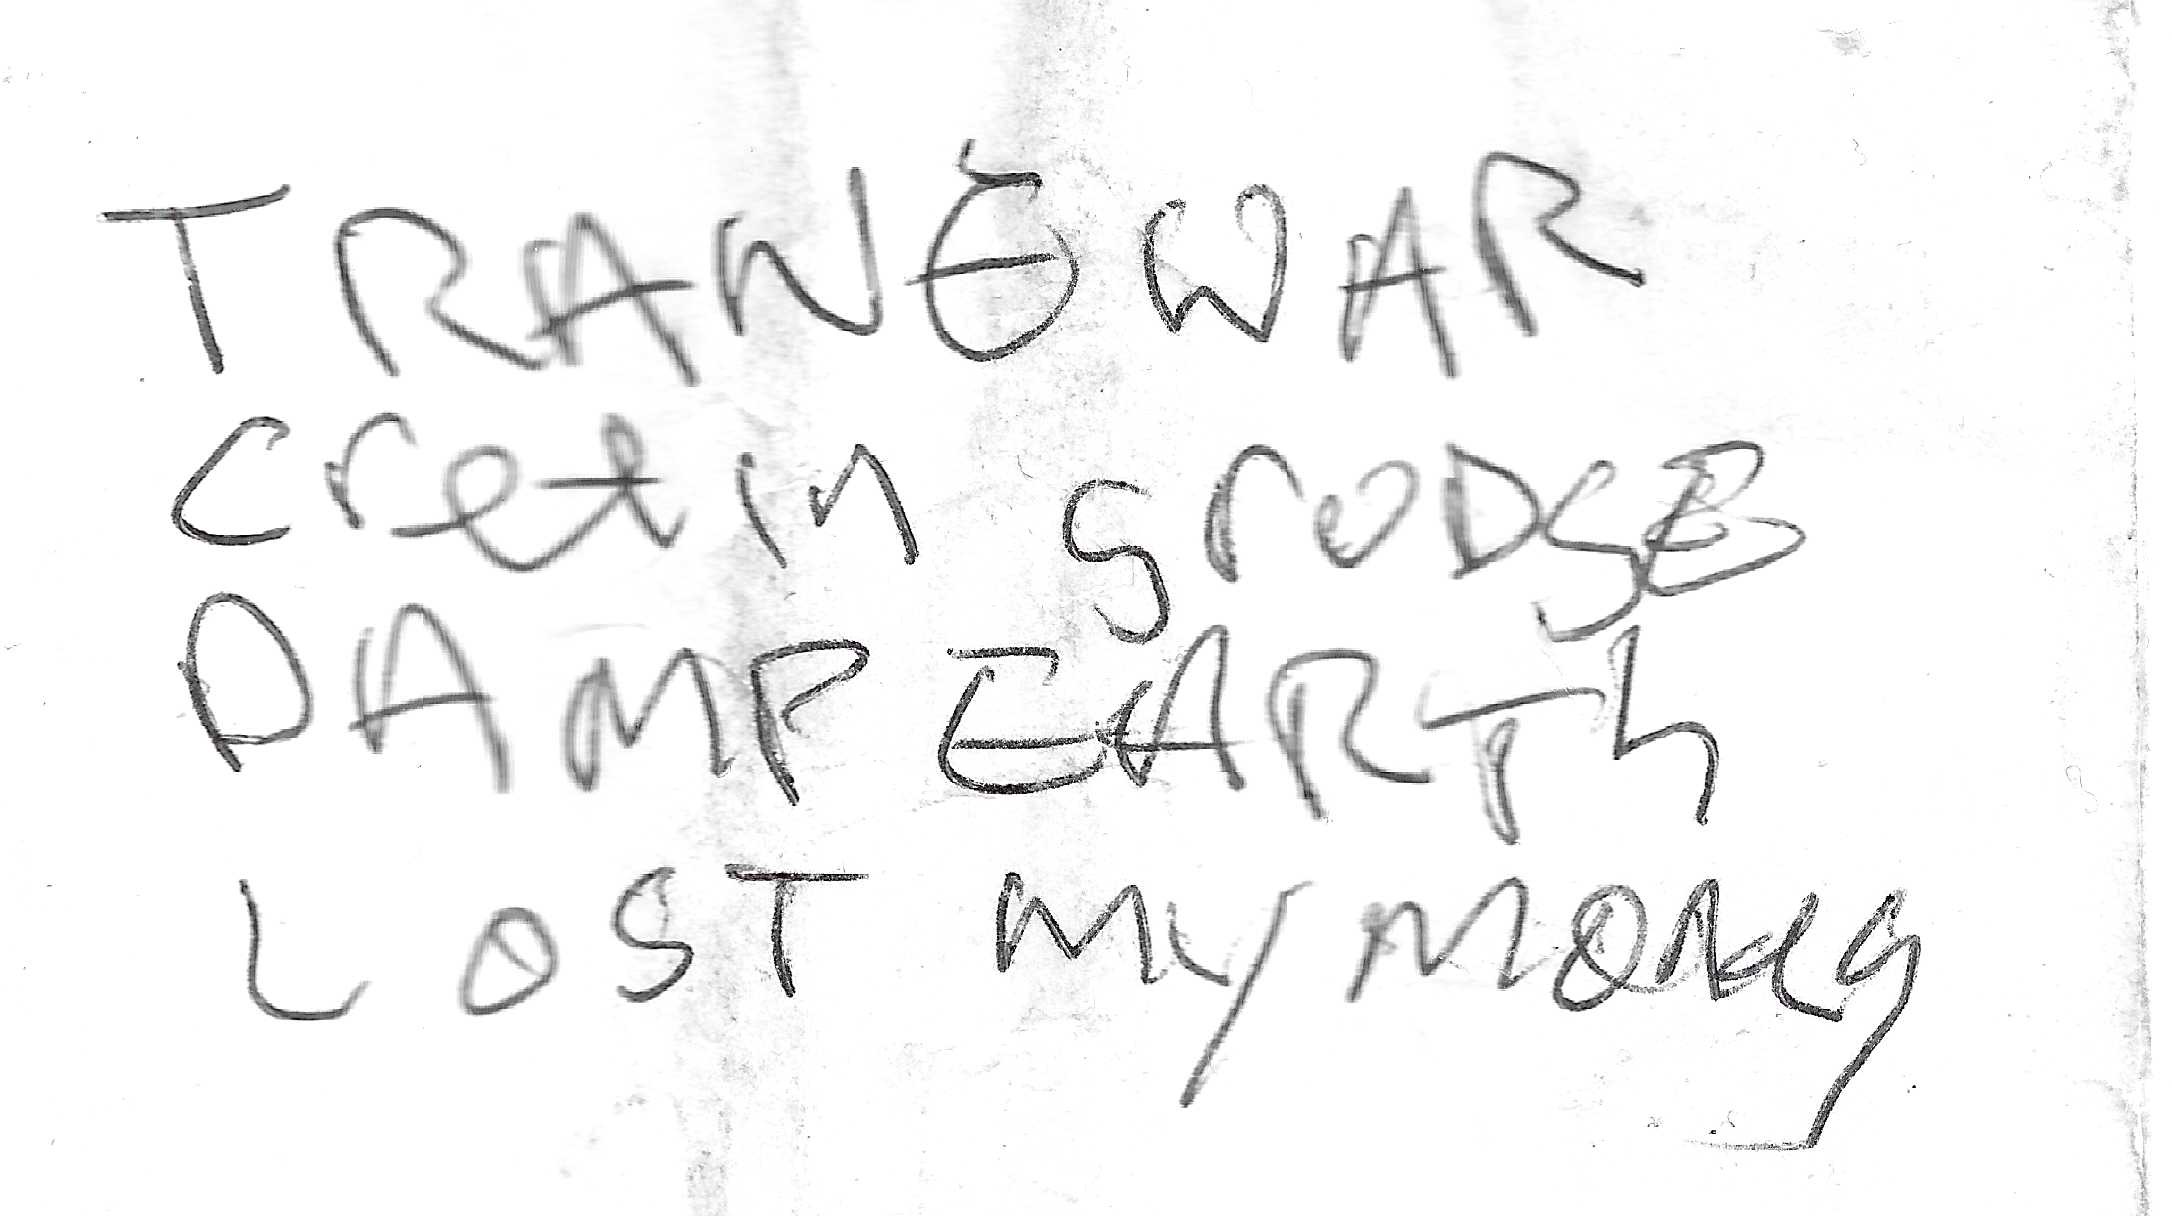 TRANE WAR
Cretin grudge
DAMP EARTh
LOST MY MONey